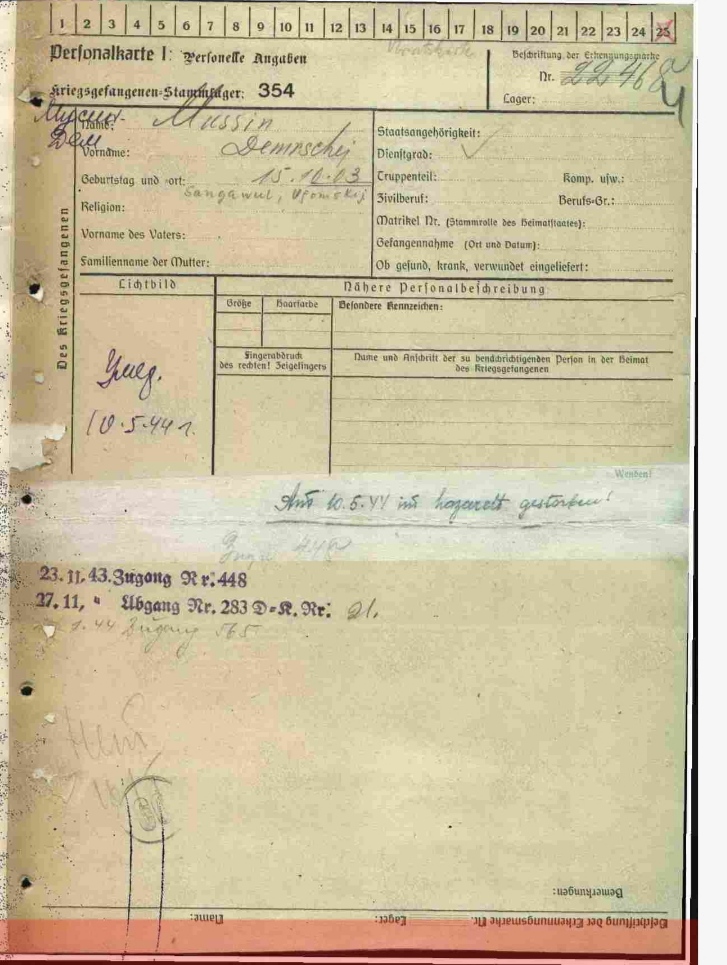 1 2 3 4 5 6 7 8 9 10 11 12 13 14 15 16 17 18 19 20 21 22 23 24 25
Personalkarte I: Personelle Angaben
Beschriftung der Erkennungsmarke
Nr.
Kriegsgefangenen-Stammlager: 354
Lager:
Des Kriegsgefangenen
Name: Mussin
Vorname: Demnschej
Geburtstag und -ort: 15.10.03
Sangawul,
Religion:
Vorname des Vaters:
Familienname der Mutter:
Staatsangehörigkeit:
Dienstgrad:
Truppenteil: Komp. usw.:
Zivilberuf: Berufs-Gr.:
Matrikel Nr. (Stammrolle des Heimatstaates):
Gefangennahme (Ort und Datum):
Ob gesund, krank, verwundet eingeliefert:
Lichtbild
Nähere Personalbeschreibung
Größe Haarfarbe Besondere Kennzeichen:
Fingerabdruck
des rechten! Zeigefingers
Name und Anschrift der zu benachrichtigenden Person in der Heimat
des Kriegsgefangenen
10.5.44 г.
Wenden!
Am 10.5.44 im Lazarett gestorben!
23.11.43. Zugang Nr. 448
27.11. " Abgang Nr. 283 D=K. Nr: 21.
1.44 Zugang 565
Bemerkungen:
Beschriftung der Erkennungsmarke Nr. Lager: Name: